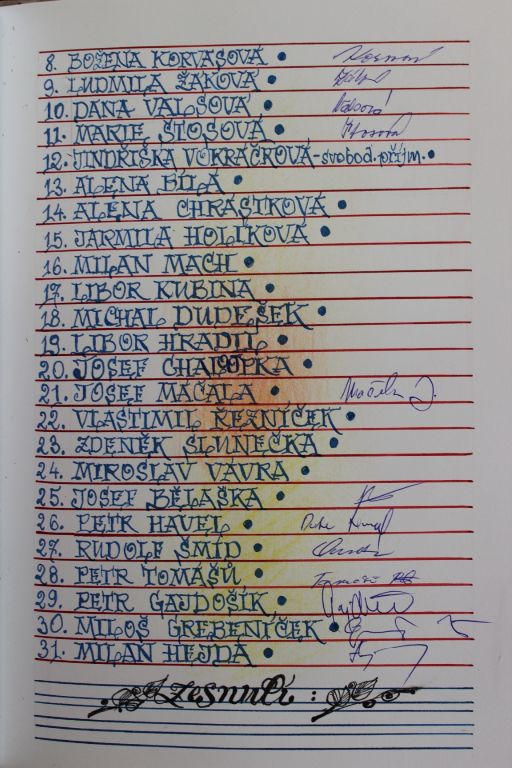 8. BOŽENA KORVASOVÁ •
9. LUDMILA ŽÁKOVÁ •
10. DANA VALSOVÁ • Valsová
11. MARIE ŠTOSOVÁ • Štosová
12. JINDŘIŠKA VOKRÁČKOVÁ-svobod.příjm. •
13. ALENA BÍLÁ •
14. ALENA CHRÁSTKOVÁ •
15. JARMILA HOLÍKOVÁ •
16. MILAN MACH •
17. LIBOR KUBINA •
18. MICHAL DUDEŠEK •
19. LIBOR HRADIL •
20. JOSEF CHALUPKA •
21. JOSEF MÁČALA • Máčala J.
22. VLASTIMIL ŘEZNÍČEK •
23. ZDENĚK SLUNEČKA •
24. MIROSLAV VÁVRA •
25. JOSEF BĚLAŠKA •
26. PETR HAVEL •
27. RUDOLF ŠMÍD •
28. PETR TOMÁŠŮ •
29. PETR GAJDOŠÍK •
30. MILOŠ GREBENÍČEK •
31. MILAN HEJDA •
zesnulí :